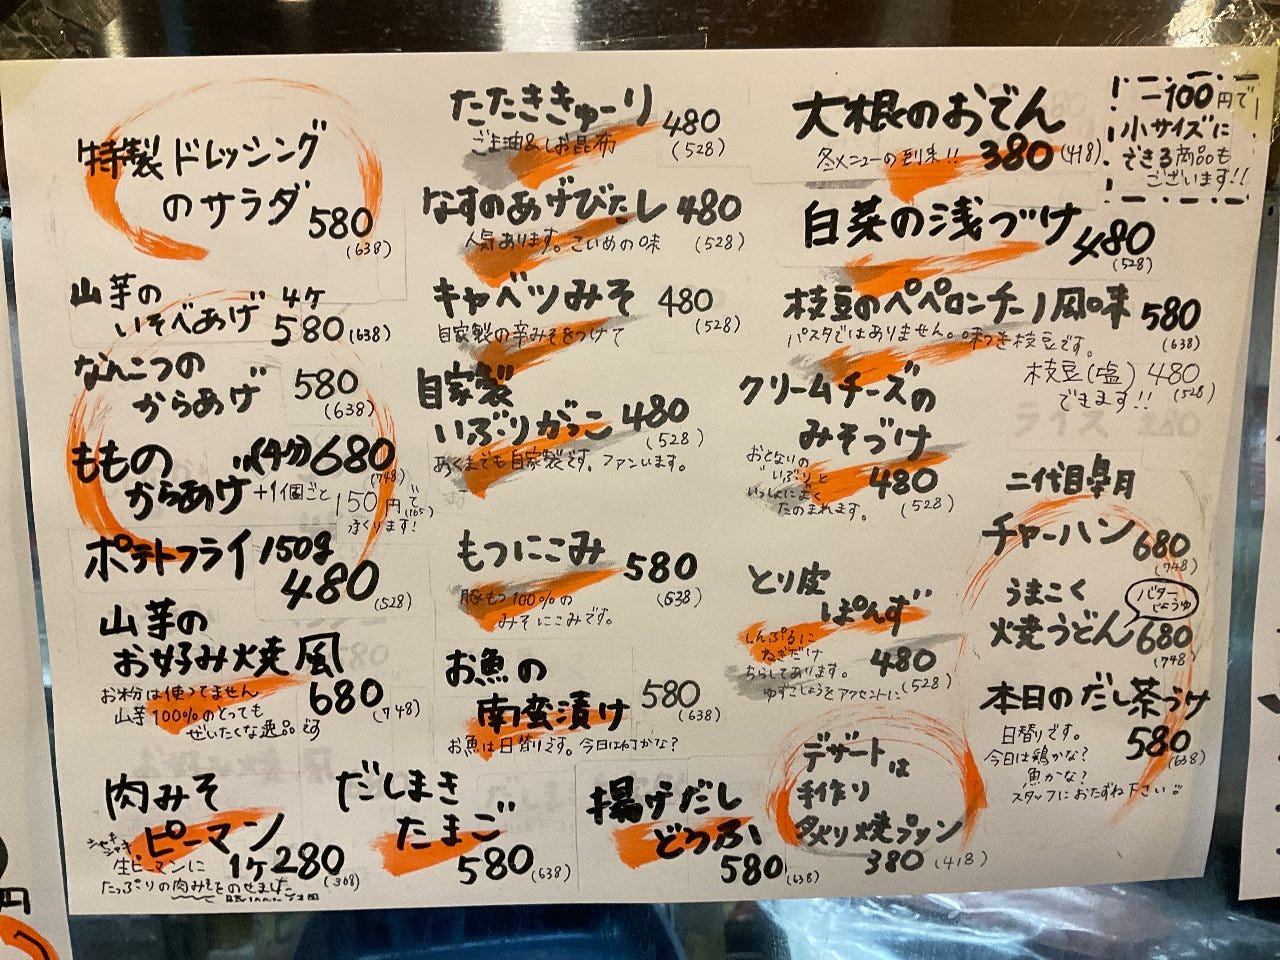 特製ドレッシング
のサラダ 580
(638)
山芋の 4ケ
いそべあげ 580(638)
なんこつの
からあげ 580
(638)
ももの(4ケ)680
からあげ (748)
+1個ごと150円で(165)
承ります!
ポテトフライ150g
480(528)
山芋の
お好み焼風
680(748)
お粉は使ってません
山芋100%のとっても
ぜいたくな逸品です
肉みそ
ピーマン
1ケ280(308)
シャキシャキ
生ピーマンに
たっぷりの肉みそをのせました
たたききゅーり 480
(528)
ごま油&しお昆布
なすのあげびたし 480
(528)
人気あります。こいめの味
キャベツみそ 480
(528)
自家製の辛みそをつけて
自家製
いぶりがっこ 480
(528)
あくまでも自家製です。ファンいます。
もつにこみ 580
(638)
豚もつ100%の
みそにこみです。
お魚の
南蛮漬け 580
(638)
お魚は日替りです。今日は何かな?
だしまき
たまご
580(638)
揚げだし
どうふ
580(638)
大根のおでん
380(418)
冬メニューの到来!!
-100円で
小サイズに
できる商品も
ございます!!
白菜の浅づけ 480
(528)
枝豆のペペロンチーノ風味 580
(638)
パスタではありません。味つき枝豆です。
枝豆(塩)480
(528)
できます!!
クリームチーズの
みそづけ
480
(528)
おとなりの
"いぶり"と
いっしょによく
たのまれます。
とり皮
ぽんず
480
(528)
しんぷるに
ねぎだけ
ちらしてあります。
ゆずこしょうをアクセントに
デザートは
手作り
炙り焼プリン
380(418)
ライス 280
二代目皐月
チャーハン 680
(748)
うまこく
焼うどん 680
(748)
バター
しょうゆ
本日のだし茶づけ
580
(638)
日替りです。
今日は鶏かな?
魚かな?
スタッフにおたずね下さい
円